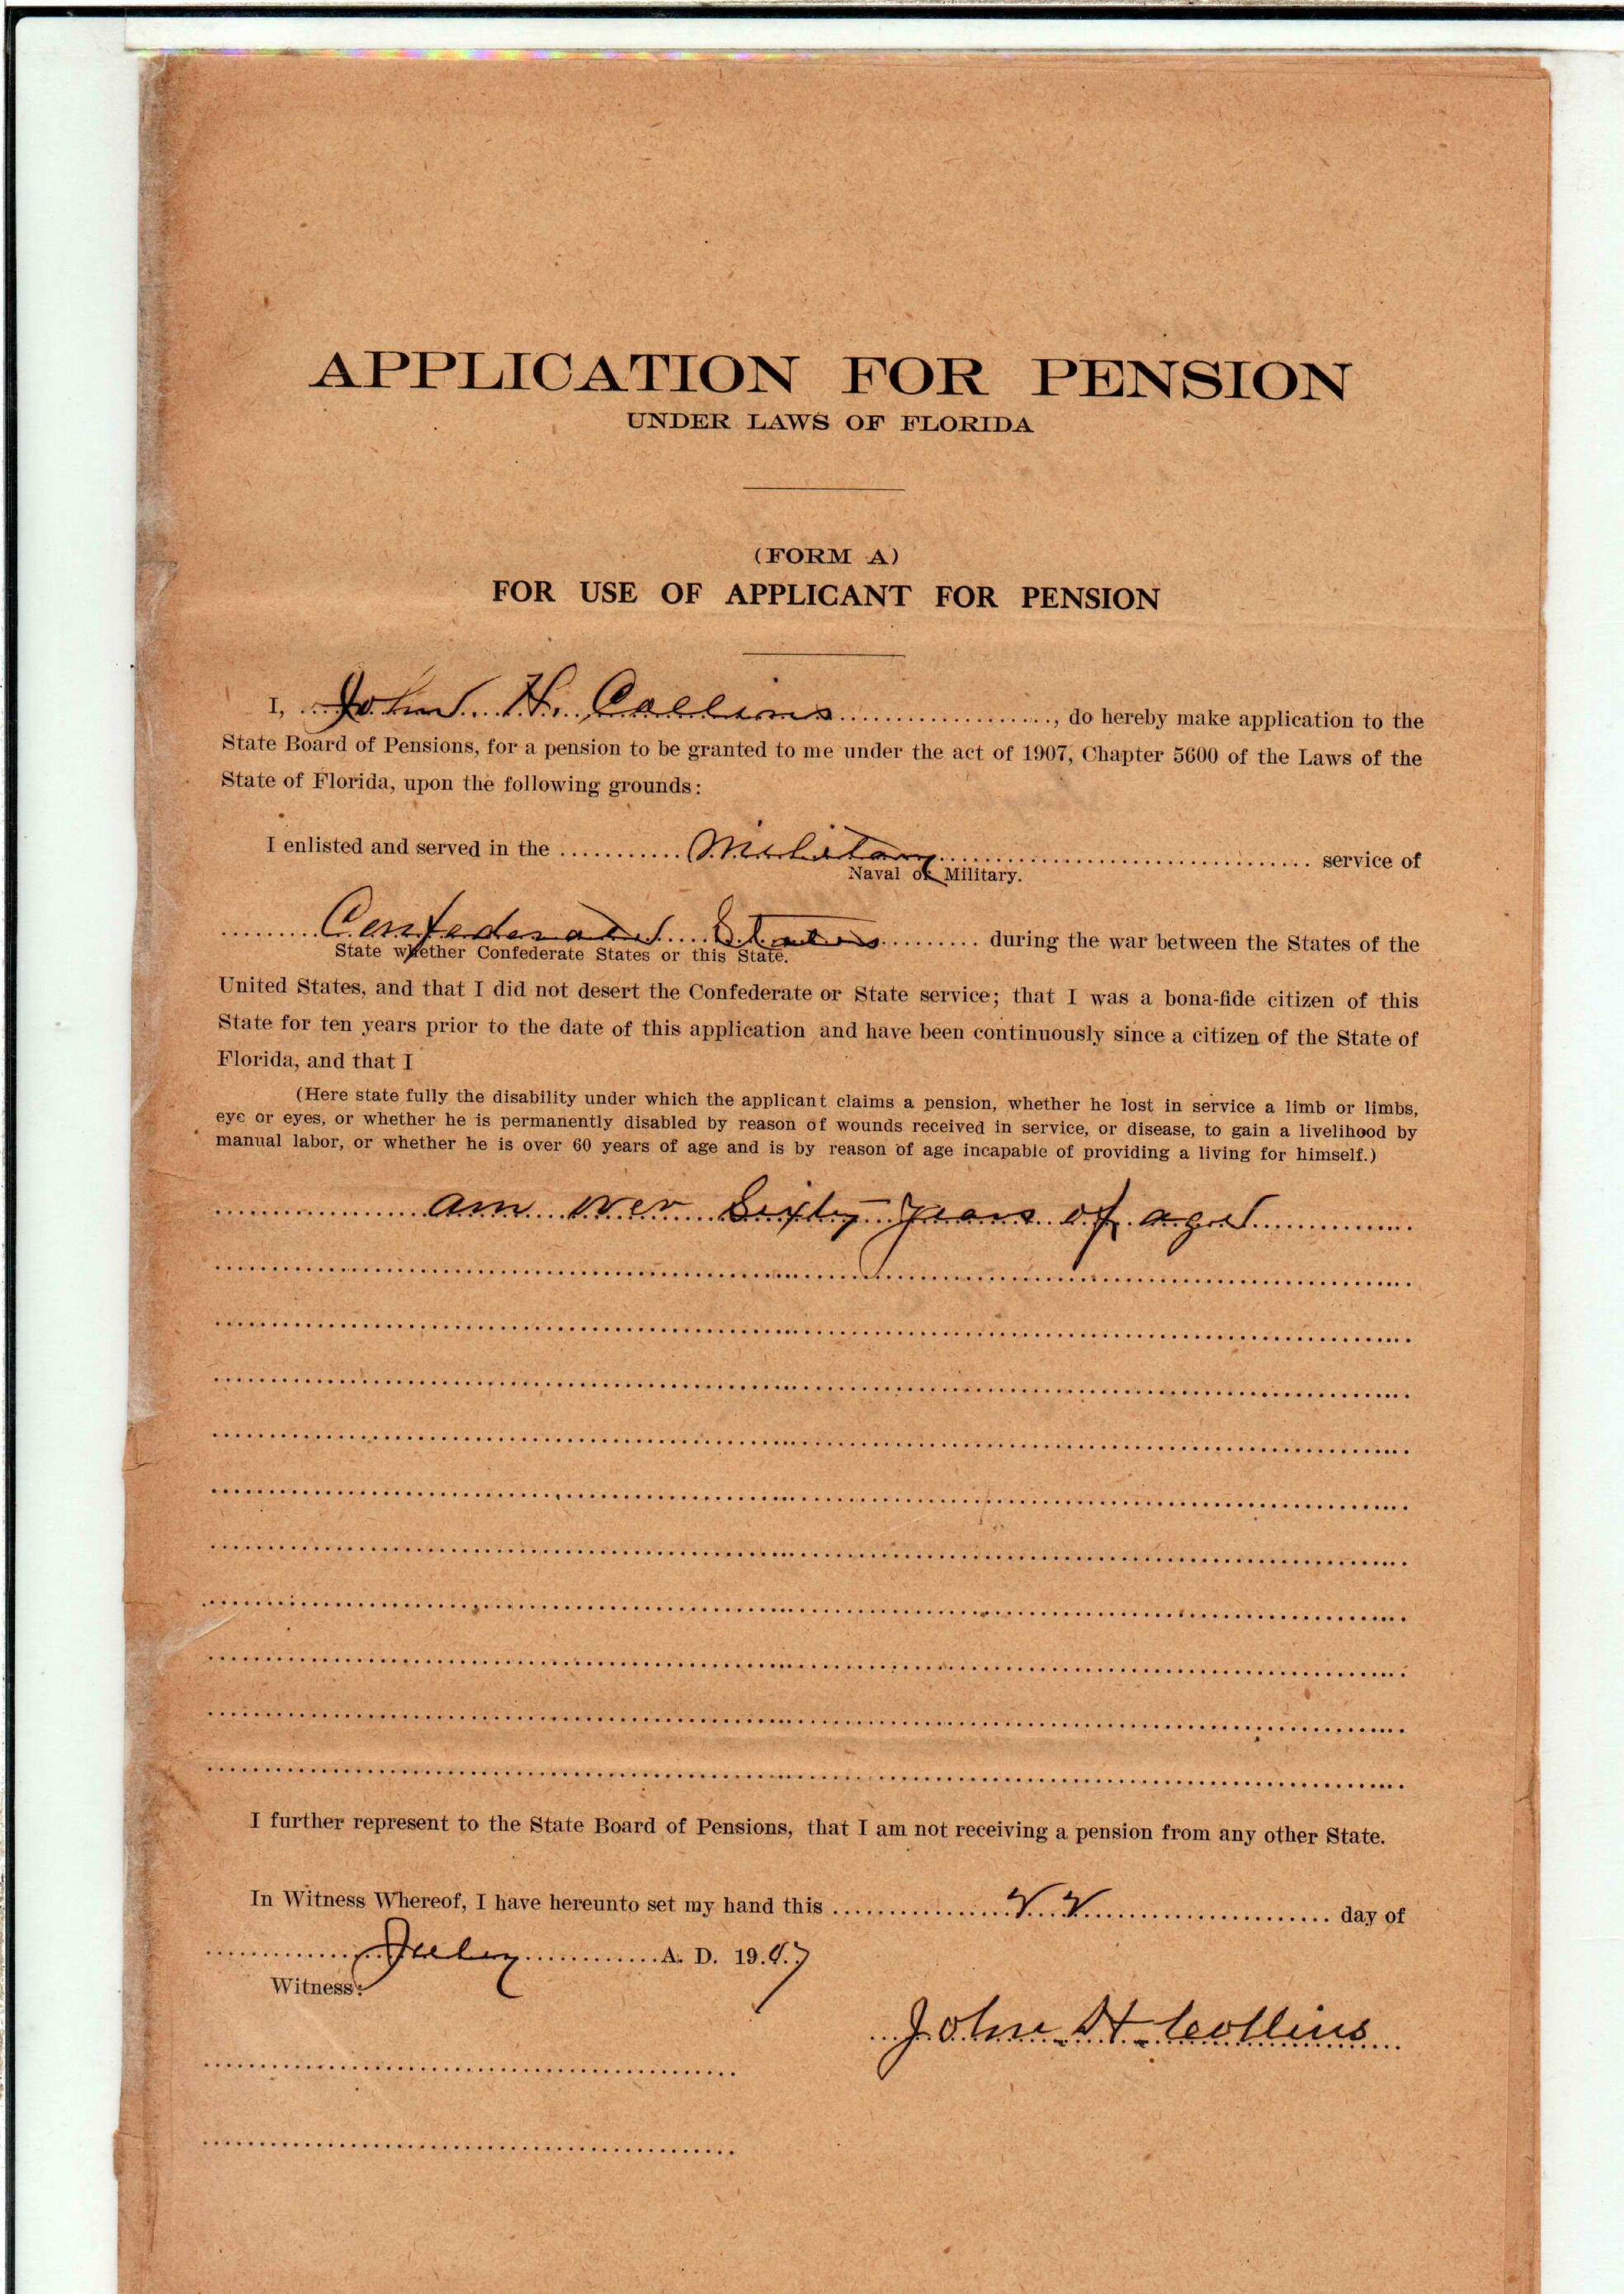 APPLICATION FOR PENSION
UNDER LAWS OF FLORIDA
(FORM A)
FOR USE OF APPLICANT FOR PENSION
I, John H. Collins, do hereby make application to the
State Board of Pensions, for a pension to be granted to me under the act of 1907, Chapter 5600 of the Laws of the
State of Florida, upon the following grounds:
I enlisted and served in the Military service of
Naval or Military.
Confederate States during the war between the States of the
State whether Confederate States or this State.
United States, and that I did not desert the Confederate or State service; that I was a bona-fide citizen of this
State for ten years prior to the date of this application and have been continuously since a citizen of the State of
Florida, and that I
(Here state fully the disability under which the applicant claims a pension, whether he lost in service a limb or limbs,
eye or eyes, or whether he is permanently disabled by reason of wounds received in service, or disease, to gain a livelihood by
manual labor, or whether he is over 60 years of age and is by reason of age incapable of providing a living for himself.)
am over Sixty years of age
I further represent to the State Board of Pensions, that I am not receiving a pension from any other State.
In Witness Whereof, I have hereunto set my hand this day of
July A. D. 1907
Witness:
John H Collins